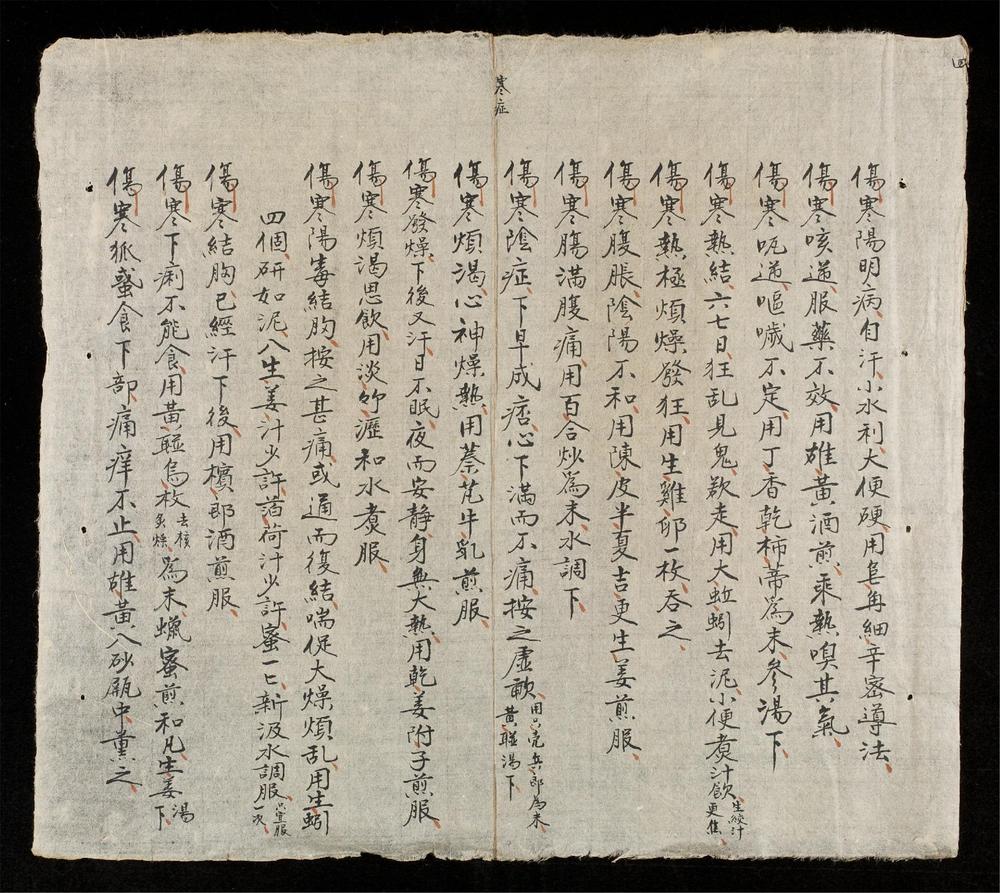 四
傷寒陽明病自汗小水利大便硬用皂角細辛蜜導法
傷寒咳逆服藥不效用雄黃酒煎乘熱嗅其氣
傷寒呃逆嘔噦不定用丁香乾柿蒂為末參湯下
傷寒熱結六七日狂乱見鬼欲走用大蚯蚓去泥小便煮汁飲生絞汁更佳
傷寒熱極煩燥發狂用生雞卵一枚吞之
傷寒腹脹陰陽不和用陳皮半夏吉更生姜煎服
傷寒腸滿腹痛用百合炒為末水調下
傷寒陰症下早成痞心下滿而不痛按之虛軟用只壳兵郎為末黃連湯下
寒症
傷寒煩渴心神燥熱用蔞芤牛乳煎服
傷寒發燥下後又汗日不眠夜而安静身無大熱用乾姜附子煎服
傷寒煩渴思飲用淡竹瀝和水煮服
傷寒陽毒結胸按之甚痛或通而復結喘促大燥煩乱用生蚓
四個研如泥入生姜汁少許荷汁少許蜜一匕新汲水調服服一次
傷寒結胸已經汗下後用檳郎酒煎服
傷寒下痢不能食用黃連烏枚去核炙燥為末蠟蜜煎和丸生姜湯下
傷寒狐蜮食下部痛痒不止用雄黃入砂瓶中薰之